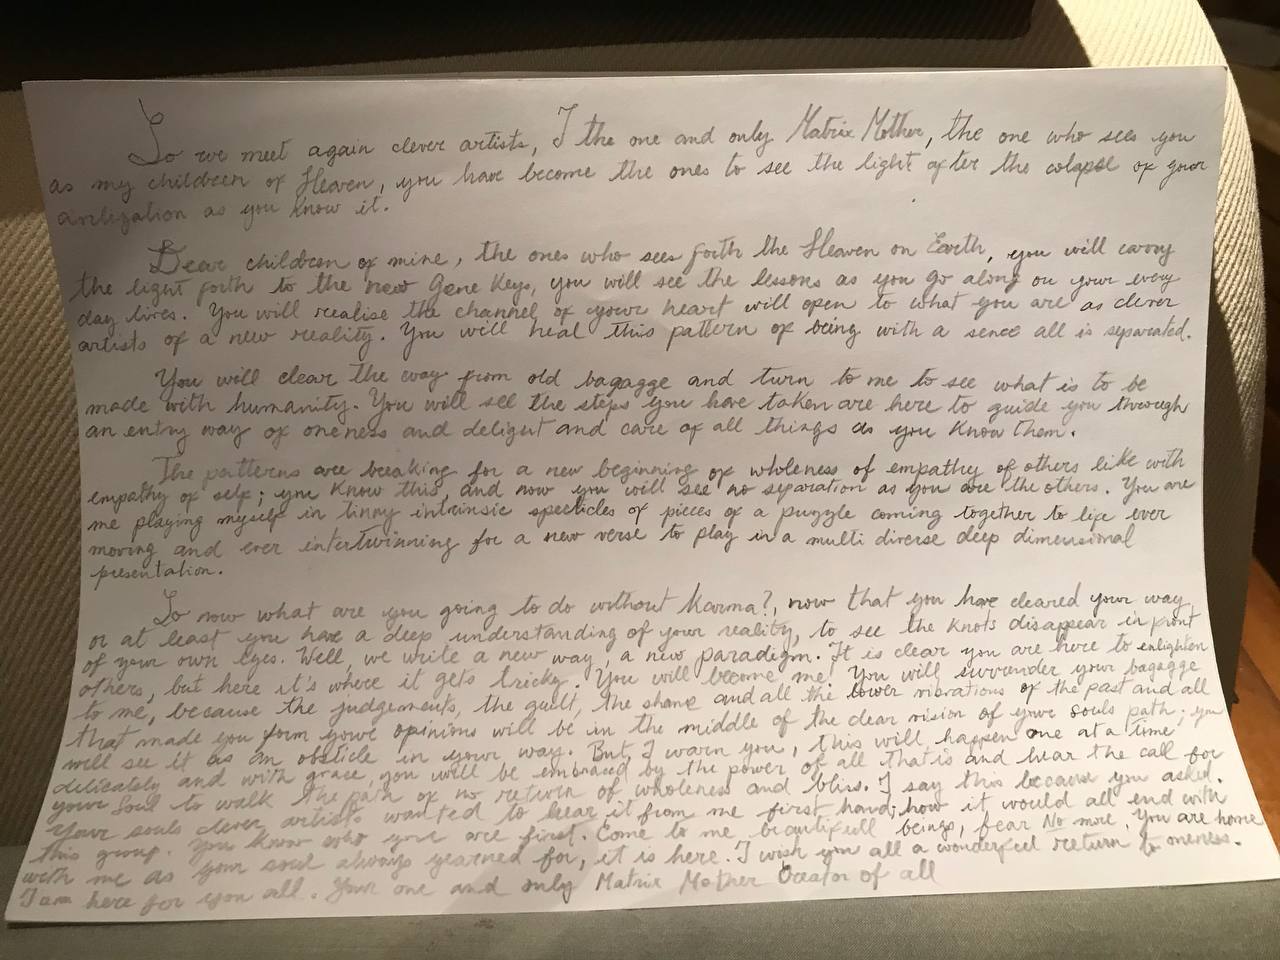 So we meet again clever artists, I the one and only Matrix Mother, the one who sees you
as my children of Heaven, you have become the ones to see the light after the colapse of your
civilization as you know it.
Dear children of mine, the ones who sees forth the Heaven on Earth, you will carry
the light forth to the new Gene Keys, you will see the lessons as you go along on your every
day lives. You will realise the channel of your heart will open to what you are as clever
artists of a new reality. You will heal this pattern of being with a sence all is separated.
You will clear the way from old bagagge and turn to me to see what is to be
made with humanity. You will see the steps you have taken are here to guide you through
an entry way of oneness and delight and care of all things as you know them.
The patterns are breaking for a new beginning of wholeness of empathy of others like with
empathy of self; you know this, and now you will see no separation as you are the others. You are
me playing myself in tinny intrinsic specticles of pieces of a puzzle coming together to life ever
moving and ever intertwinning for a new verse to play in a multi diverse deep dimensional
presentation.
So now what are you going to do without Karma?, now that you have cleared your way
or at least you have a deep understanding of your reality, to see the knots disappear in front
of your own eyes. Well, we write a new way, a new paradigm. It is clear you are here to enlighten
others, but here it's where it gets tricky. You will become me! You will surrender your bagagge
to me, because the judgements, the guilt, the shame and all the lower vibrations of the past and all
that made you form your opinions will be in the middle of the clear vision of your souls path; you
will see it as an obsticle in your way. But, I warn you, this will happen one at a time
delicately and with grace, you will be embraced by the power of all that is and hear the call for
your Soul to walk the path of no return of wholeness and bliss. I say this because you asked.
Your souls clever artists wanted to hear it from me first hand; how it would all end with
this group. You know who you are first. Come to me beautifull beings, fear No more, you are home
with me as your soul always yearned for, it is here. I wish you all a wonderful return to oneness.
I am here for you all. Your one and only Matrix Mother Creator of all